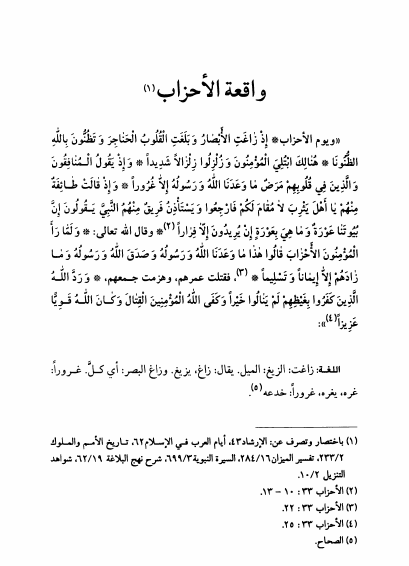 واقعة الأحزاب (١)
«ويوم الأحزاب* إِذْ زَاغَتِ الأَبْصَارُ وَبَلَغَتِ الْقُلُوبُ الْحَنَاجِرَ وَتَظُنُّونَ بِاللَّهِ
الظُّنُونَا * هُنَالِكَ ابْتُلِيَ الْمُؤْمِنُونَ وَزُلْزِلُوا زِلْزَالاً شَدِيداً * وَإِذْ يَقُولُ الْمُنَافِقُونَ
وَالَّذِينَ فِي قُلُوبِهِمْ مَرَضٌ مَا وَعَدَنَا اللَّهُ وَرَسُولُهُ إِلاَّ غُرُوراً * وَإِذْ قَالَتْ طَائِفَةٌ
مِنْهُمْ يَا أَهْلَ يَثْرِبَ لاَ مُقَامَ لَكُمْ فَارْجِعُوا وَيَسْتَأْذِنُ فَرِيقٌ مِنْهُمُ النَّبِيَّ يَقُولُونَ إِنَّ
بُيُوتَنَا عَوْرَةٌ وَمَا هِيَ بِعَوْرَةٍ إِنْ يُرِيدُونَ إِلاَّ فِرَاراً (٢)* وقال الله تعالى: * وَلَمَّا رَءَا
الْمُؤْمِنُونَ الأَحْزَابَ قَالُوا هَذَا مَا وَعَدَنَا اللَّهُ وَرَسُولُهُ وَصَدَقَ اللَّهُ وَرَسُولُهُ وَمَا
زَادَهُمْ إِلاَّ إِيمَاناً وَتَسْلِيماً * (٣)، فقتلت عمرهم، وهزمت جمعهم، * وَرَدَّ اللَّهُ
الَّذِينَ كَفَرُوا بِغَيْظِهِمْ لَمْ يَنَالُوا خَيْراً وَكَفَى اللَّهُ الْمُؤْمِنِينَ الْقِتَالَ وَكَانَ اللَّهُ قَوِيًّا
عَزِيزاً(٤)»:
اللغة: زاغت: الزيغ: الميل. يقال: زاغ، يزيغ. وزاغ البصر: أي كلَّ. غروراً:
غره، يغره، غروراً: خدعه(٥).
(١) باختصار وتصرف عن: الإرشاد٤٣، أيام العرب في الإسلام٦٢، تاريخ الأمم والملوك
٢٣٣/٢، تفسير الميزان٢٨٤/١٦، السيرة النبوية٦٩٩/٣، شرح نهج البلاغة ٦٢/١٩، شواهد
التنزيل ١٠/٢.
(٢) الأحزاب ٣٣: ١٠ – ١٣.
(٣) الأحزاب ٣٣: ٢٢.
(٤) الأحزاب ٣٣: ٢٥.
(٥) الصحاح.